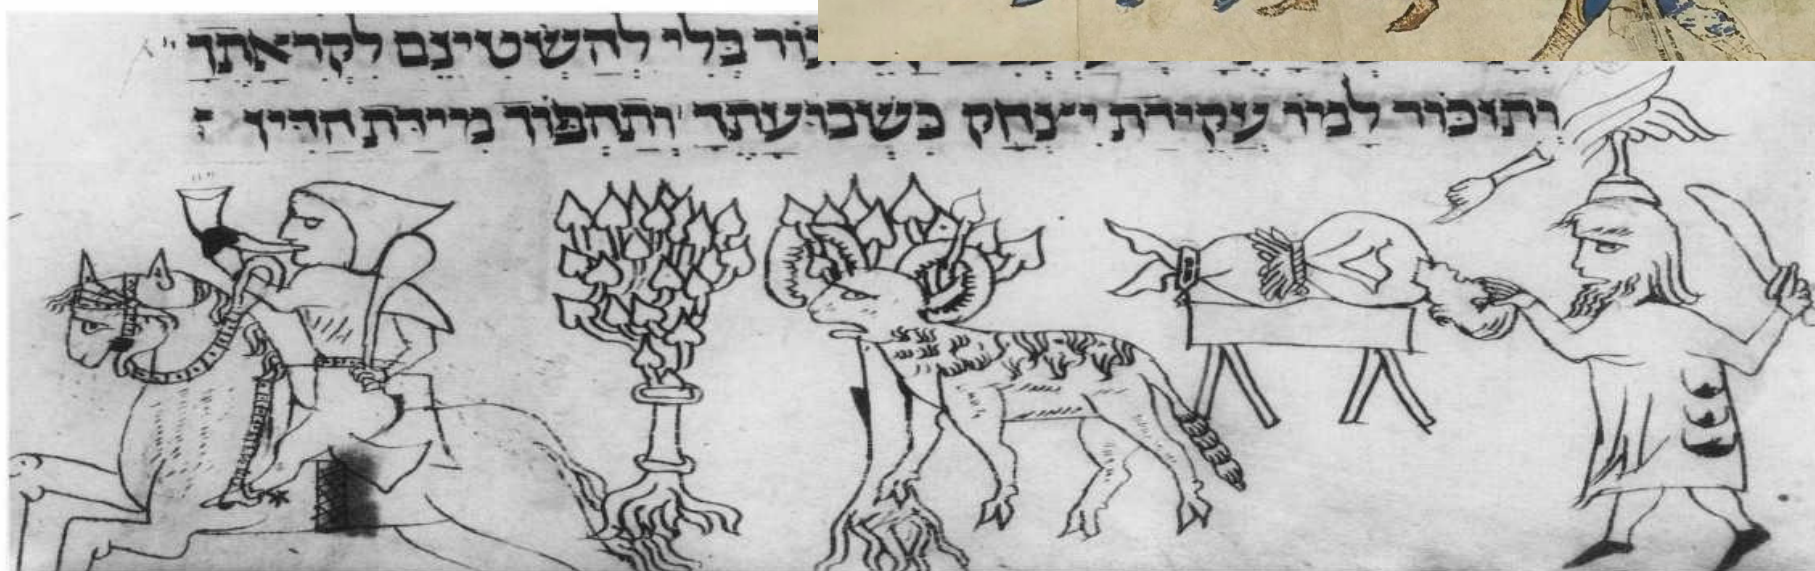 בלי להשטינם לקראתך
ותזכור למו עקידת יצחק כשבועתך ותהפוך מידת הדין :